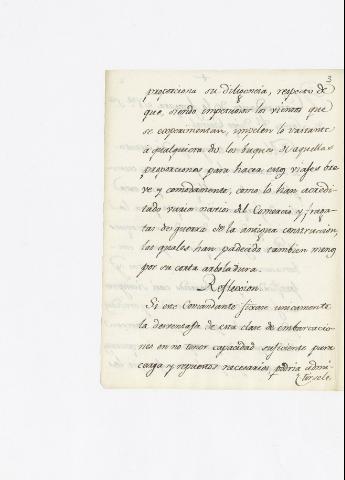 3
proporciona su diligencia, respecto de
que, siendo imperiosos los vientos que
se experimentan, impelen lo bastante
à qualquiera de los buques de aquellas
proporciones para hacer estos viajes bre
ve y comodamente, como lo han acredi-
tado varios navios del Comercio y fraga
tas de guerra de la antigua construccion,
los quales han padecido tambien menos
por su corta arboladura.
Reflexion.
Si este Comandante fixase unicamente
la desventaja de esta clase de embarcacio
nes en no tener capacidad suficiente para
carga y repuestos necesarios, podria admi
tirsele